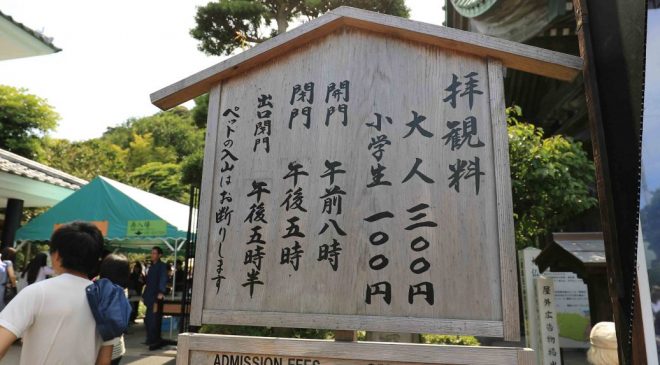 拝観料
大人 三〇〇円
小学生 一〇〇円
開門 午前八時
閉門 午後五時
出口閉門 午後五時半
ペットの入山はお断りします
ADMISSION FEES
屋外広告物